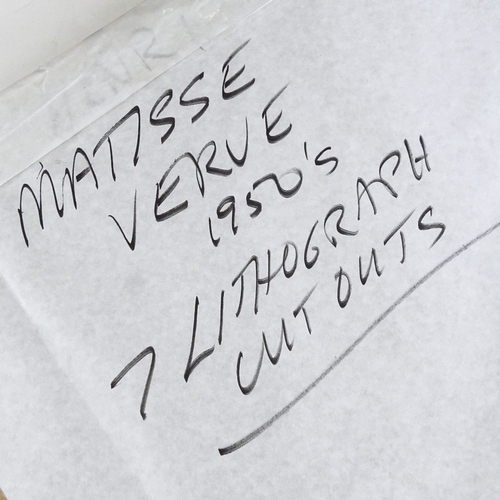 MATISSE
VERVE
1950'S
7 LITHOGRAPH
CUT OUTS